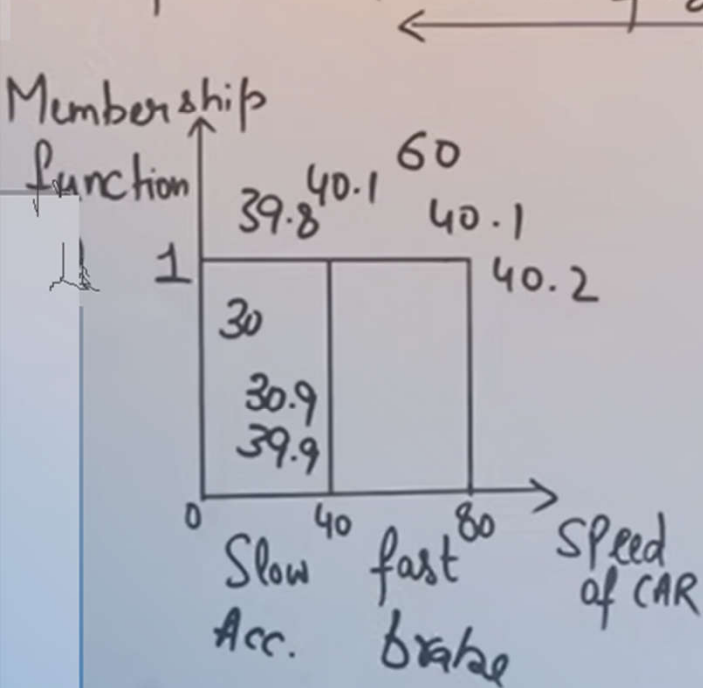 Membership
function
μ
60
39.8 40.1
40.1
1
40.2
30
30.9
39.9
0 40 80
Slow fast
Speed
of CAR
Acc. brake